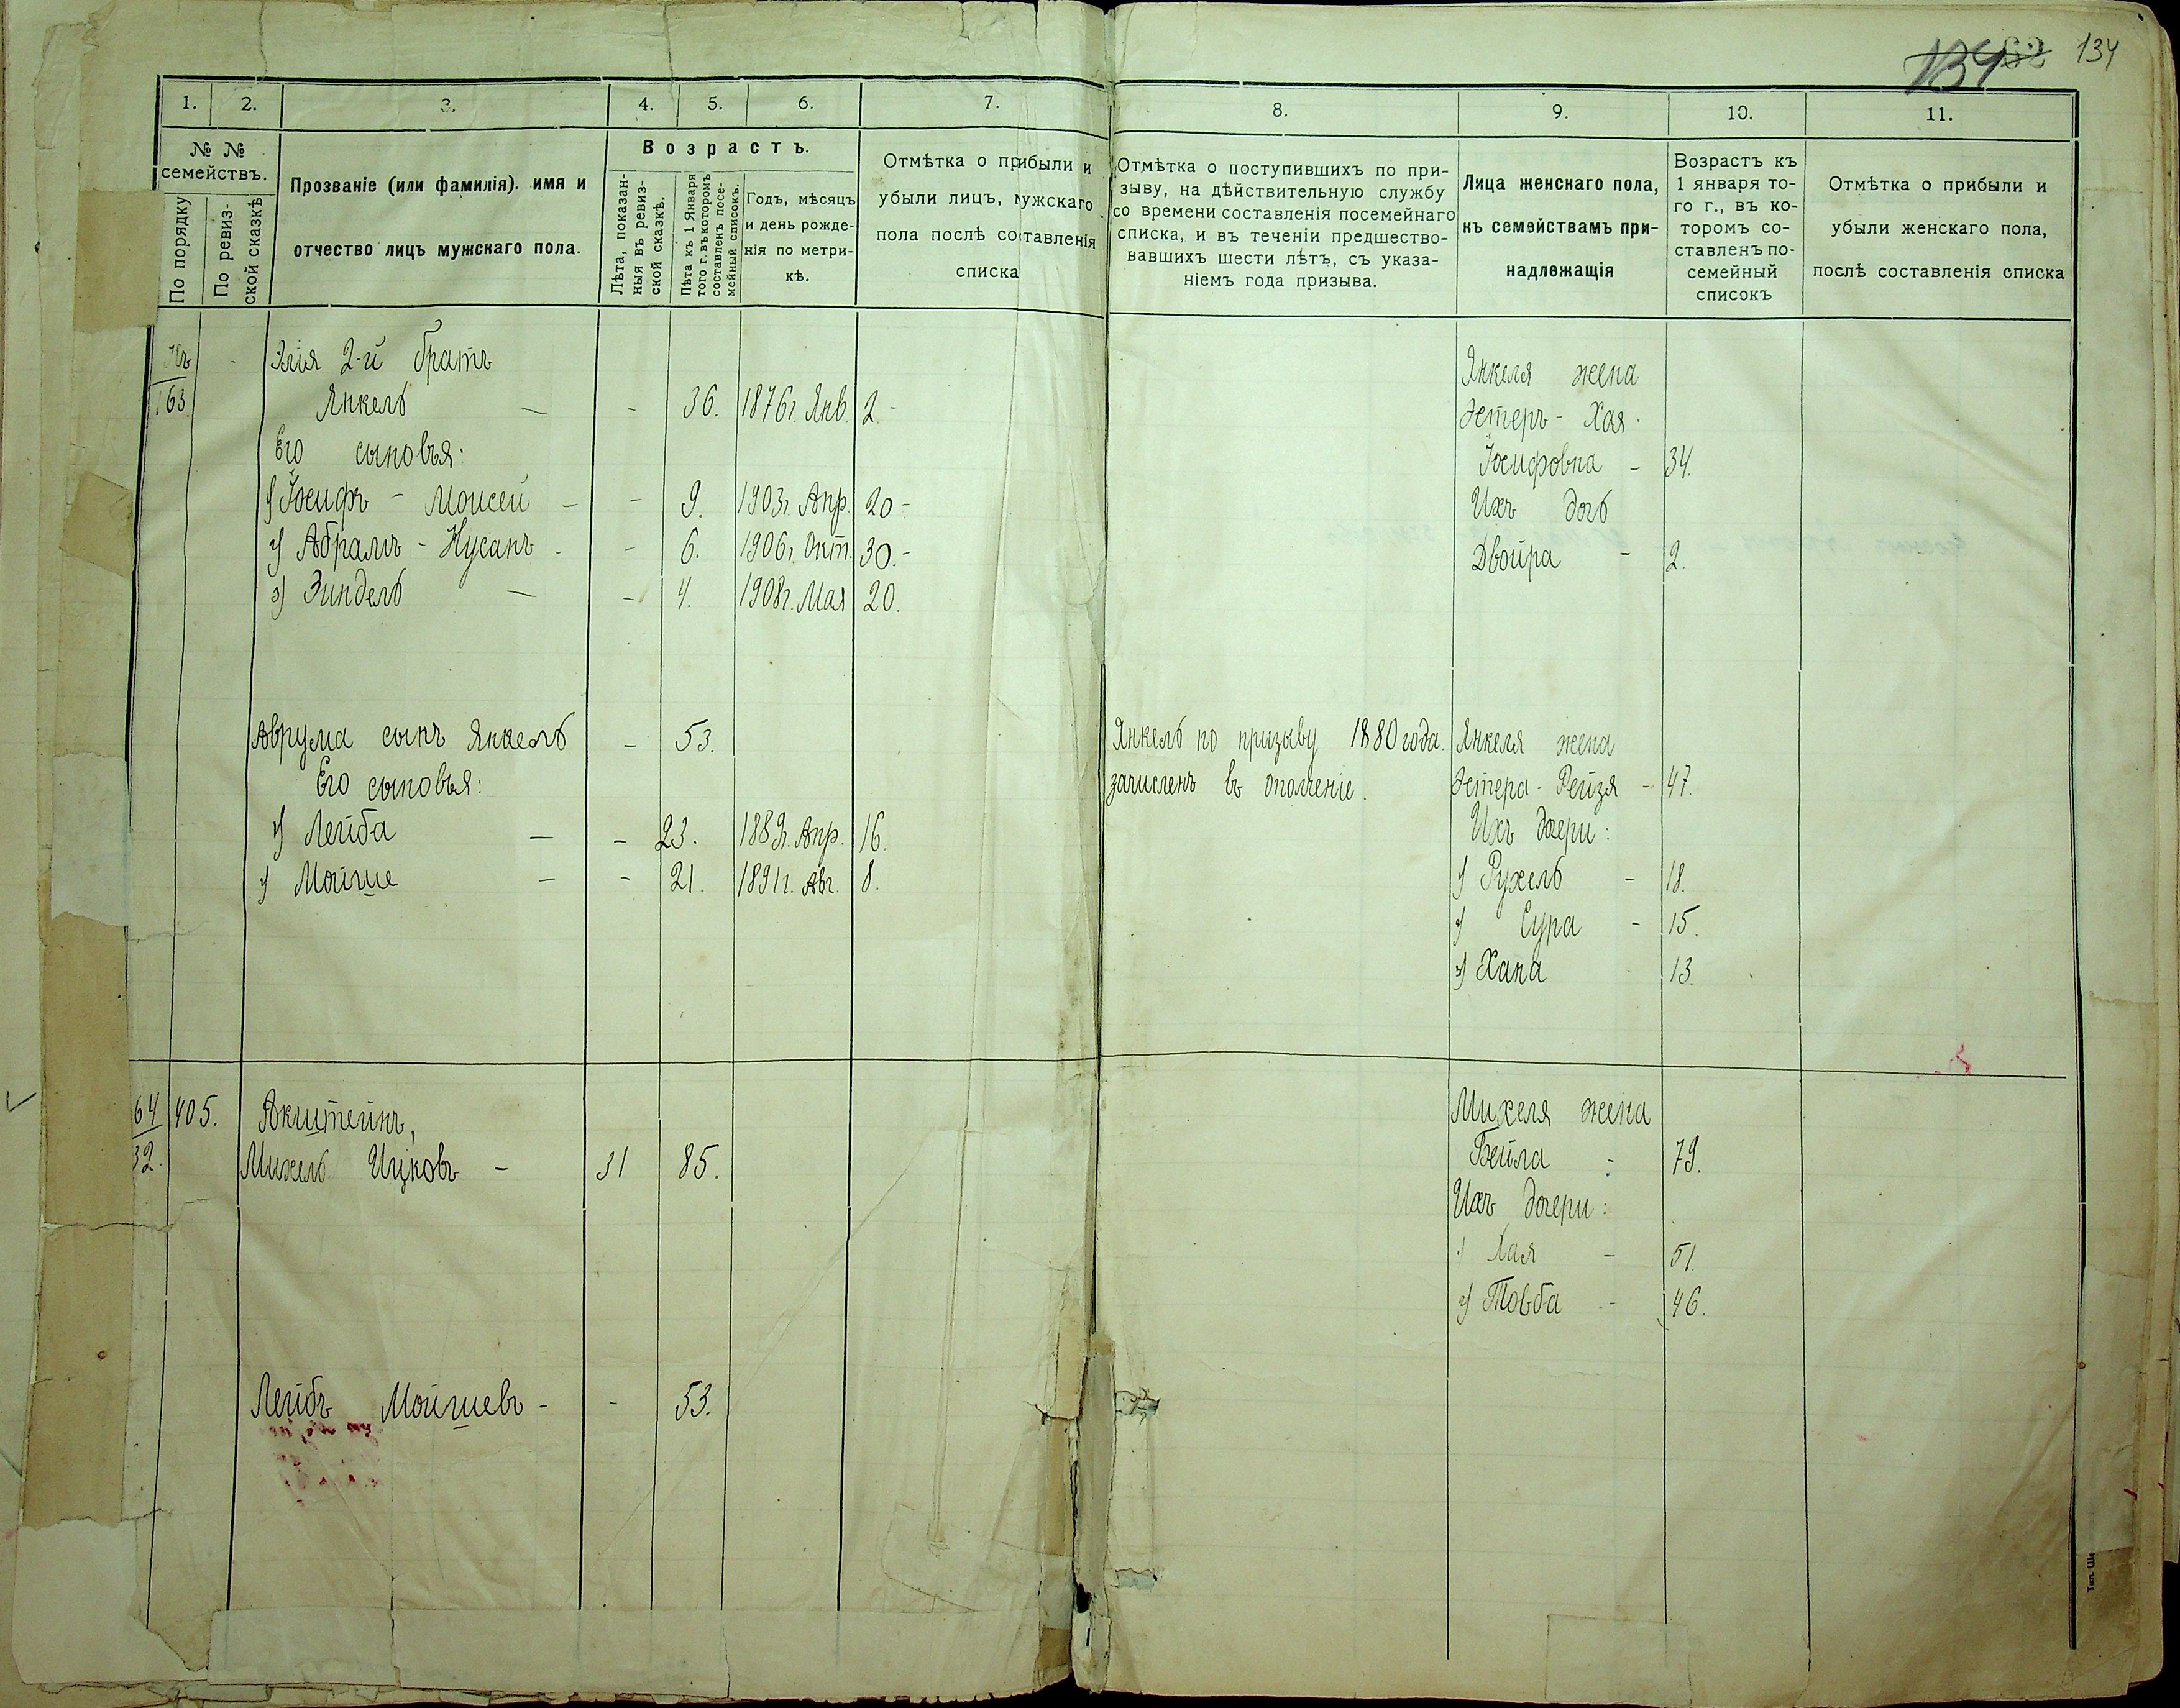 134 62 134
1. 2. 3. 4. 5. 6. 7. 8. 9. 10. 11.
№ № семействъ.
По порядку
По ревизской сказкѣ
Прозваніе (или фамилія). имя и
отчество лицъ мужскаго пола.
Возрастъ.
Лѣта, показан-
ныя въ ревиз-
ской сказкѣ.
Лѣта къ 1 Января
того г. въ которомъ
составленъ посе-
мейный списокъ.
Годъ, мѣсяцъ
и день рожде-
нія по метри-
кѣ.
Отмѣтка о прибыли и
убыли лицъ, мужскаго
пола послѣ составленія
списка
Отмѣтка о поступившихъ по при-
зыву, на дѣйствительную службу
со времени составленія посемейнаго
списка, и въ теченіи предшество-
вавшихъ шести лѣтъ, съ указа-
ніемъ года призыва.
Лица женскаго пола,
къ семействамъ при-
надлежащія
Возрастъ къ
1 января то-
го г., въ ко-
торомъ со-
ставленъ по-
семейный
списокъ
Отмѣтка о прибыли и
убыли женскаго пола,
послѣ составленія списка
Къ - Элія 2-й братъ
63. Янкель — - 36. 1876г. Янв. 2 -
Его сыновья:
1) Іосифъ - Моисей - - 9. 1903г. Апр. 20 -
2) Абрамъ - Нусанъ - - 6. 1906г. Окт. 30. -
3) Зиндель — - 4. 1908г. Мая 20.
Янкеля жена
Эстеръ - Хая
Іосифовна - 34.
Ихъ дочь
Двойра - 2.
Аврума сынъ Янкель - 53.
Его сыновья:
1) Лейба — - 23. 1889г. Апр. 16.
2) Мойше — - 21. 1891г. Авг. 8.
Янкель по призыву 1880 года.
зачисленъ въ ополченіе.
Янкеля жена
Эстера - Рейзя - 47.
Ихъ дочери:
1) Рухель - 18.
2) Сура - 15.
3) Хана 13.
64 405. Акштейнъ,
32. Михель Ицковъ - 31 85.
Михеля жена
Бейла - 79.
Ихъ дочери:
1 Хая - 51.
2) Товба - 46.
Лейбъ Мойшевъ - - 53.
Тип. Ше